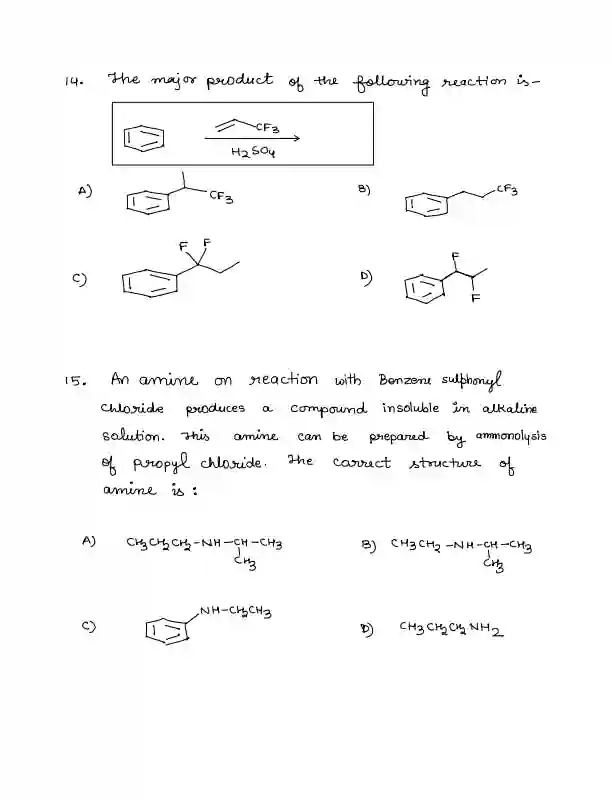 14. The major product of the following reaction is-
CF3
H2SO4
A) CF3
B) CF3
C) F F
D) F
F
15. An amine on reaction with Benzene sulphonyl
chloride produces a compound insoluble in alkaline
solution. This amine can be prepared by ammonolysis
of propyl chloride. The correct structure of
amine is :
A) CH3CH2CH2-NH-CH-CH3
CH3
B) CH3CH2-NH-CH-CH3
CH3
C) NH-CH2CH3
D) CH3CH2CH2NH2